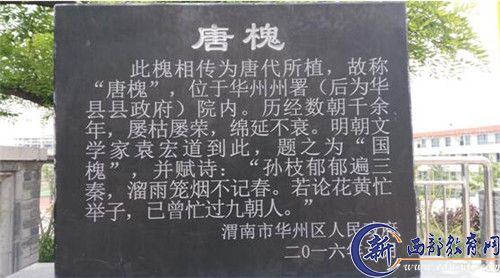 唐槐
此槐相传为唐代所植，故称
“唐槐”，位于华州州署（后为华
县县政府）院内。历经数朝千余
年，屡枯屡荣，绵延不衰。明朝文
学家袁宏道到此，题之为“国
槐”，并赋诗：“孙枝郁郁遍三
秦，溜雨笼烟不记春。若论花黄忙
举子，已曾忙过九朝人。”
渭南市华州区人民政府
二〇一六年
新
西部教育网